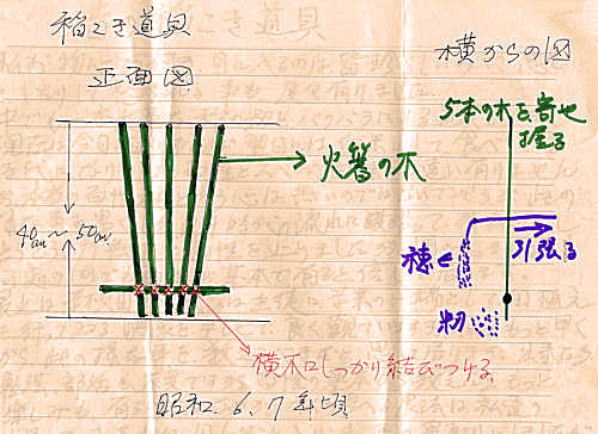 稲こき道具
正面図
横からの図
5本の木を寄せ
握る
火箸の木
40cm〜50cm
引張る
穂
籾
横木にしっかり結びつける
昭和.6.7年頃